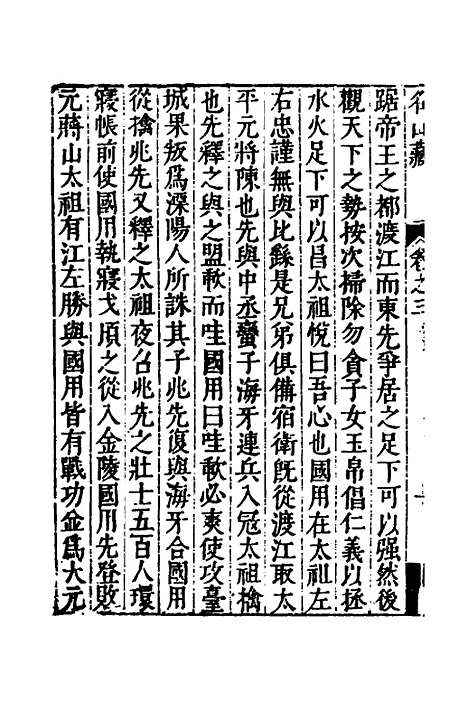 名山藏 卷之三
踞帝王之都渡江而東先爭居之足下可以强然後
觀天下之勢按次掃除勿貪子女玉帛倡仁義以拯
水火足下可以昌太祖悅曰吾心也國用在太祖左
右忠謹無與比繇是兄弟俱備宿衛旣從渡江取太
平元將陳也先與中丞蠻子海牙連兵入冦太祖擒
也先釋之與之盟歃而哇國用曰哇歃必爽使攻臺
城果叛爲溧陽人所誅其子兆先復與海牙合國用
從擒兆先又釋之太祖夜召兆先之壯士五百人環
寢帳前使國用執寢戈頃之從入金陵國用先登敗
元蔣山太祖有江左勝與國用皆有戰功金爲大元